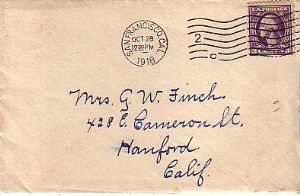 SAN FRANCISCO, CAL.
OCT 28
12:30 PM
1918
2
C
U.S. POSTAGE
3
Mrs. G. W. Finch.
428 E. Cameron St.
Hanford.
Calif.